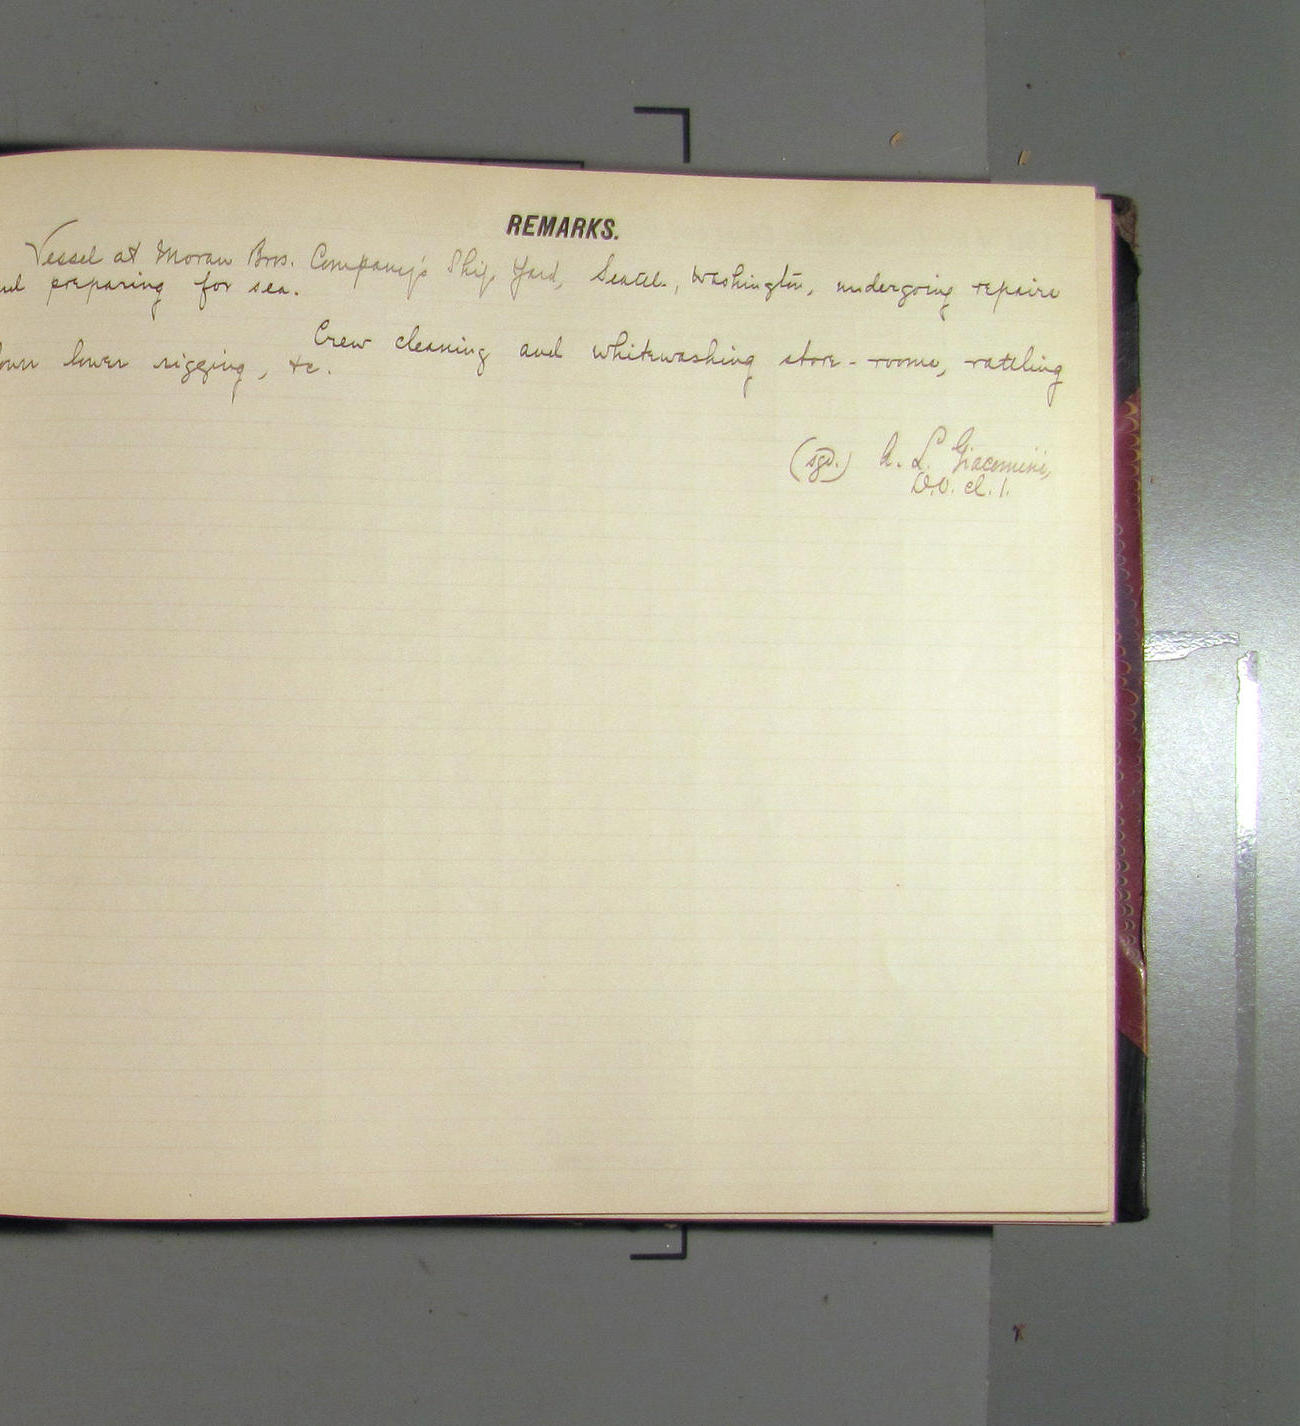 REMARKS.
Vessel at Moran Bros. Company's Ship Yard, Seattle, Washington, undergoing repairs
preparing for sea.
Crew cleaning and whitewashing store-rooms, rattling
lower rigging, &c.
(sgd.) A. L. Giacomini,
D.O. cl. 1.